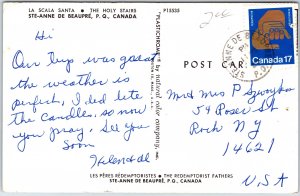 LA SCALA SANTA - THE HOLY STAIRS
STE-ANNE DE BEAUPRÉ, P.Q., CANADA
P15535
Hi
Our trip was great
the weather is
perfect, I did lite
the Candles, so now
you pray. See you
Soon
POST CAR
STE ANNE DE B
P.Q.
Canada 17
Mr + Mrs P
54 Poser St
Rock NY
14621
U.S.A
LES PÈRES RÉDEMPTORISTES - THE REDEMPTORIST FATHERS
STE-ANNE DE BEAUPRÉ, P.Q., CANADA